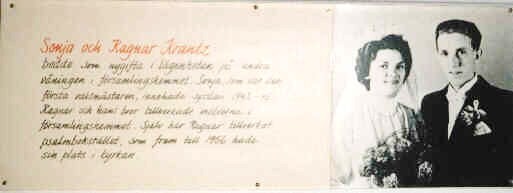 Sonja och Ragnar Krantz
bodde som nygifta i lägenheten på andra
våningen i församlingshemmet. Sonja, som var den
första vaktmästaren, innehade sysslan 1943-
Ragnar och hans bror tillverkade möblerna i
församlingshemmet. Själv har Ragnar tillverkat
psalmbokstället, som fram till 1956 hade
sin plats i kyrkan